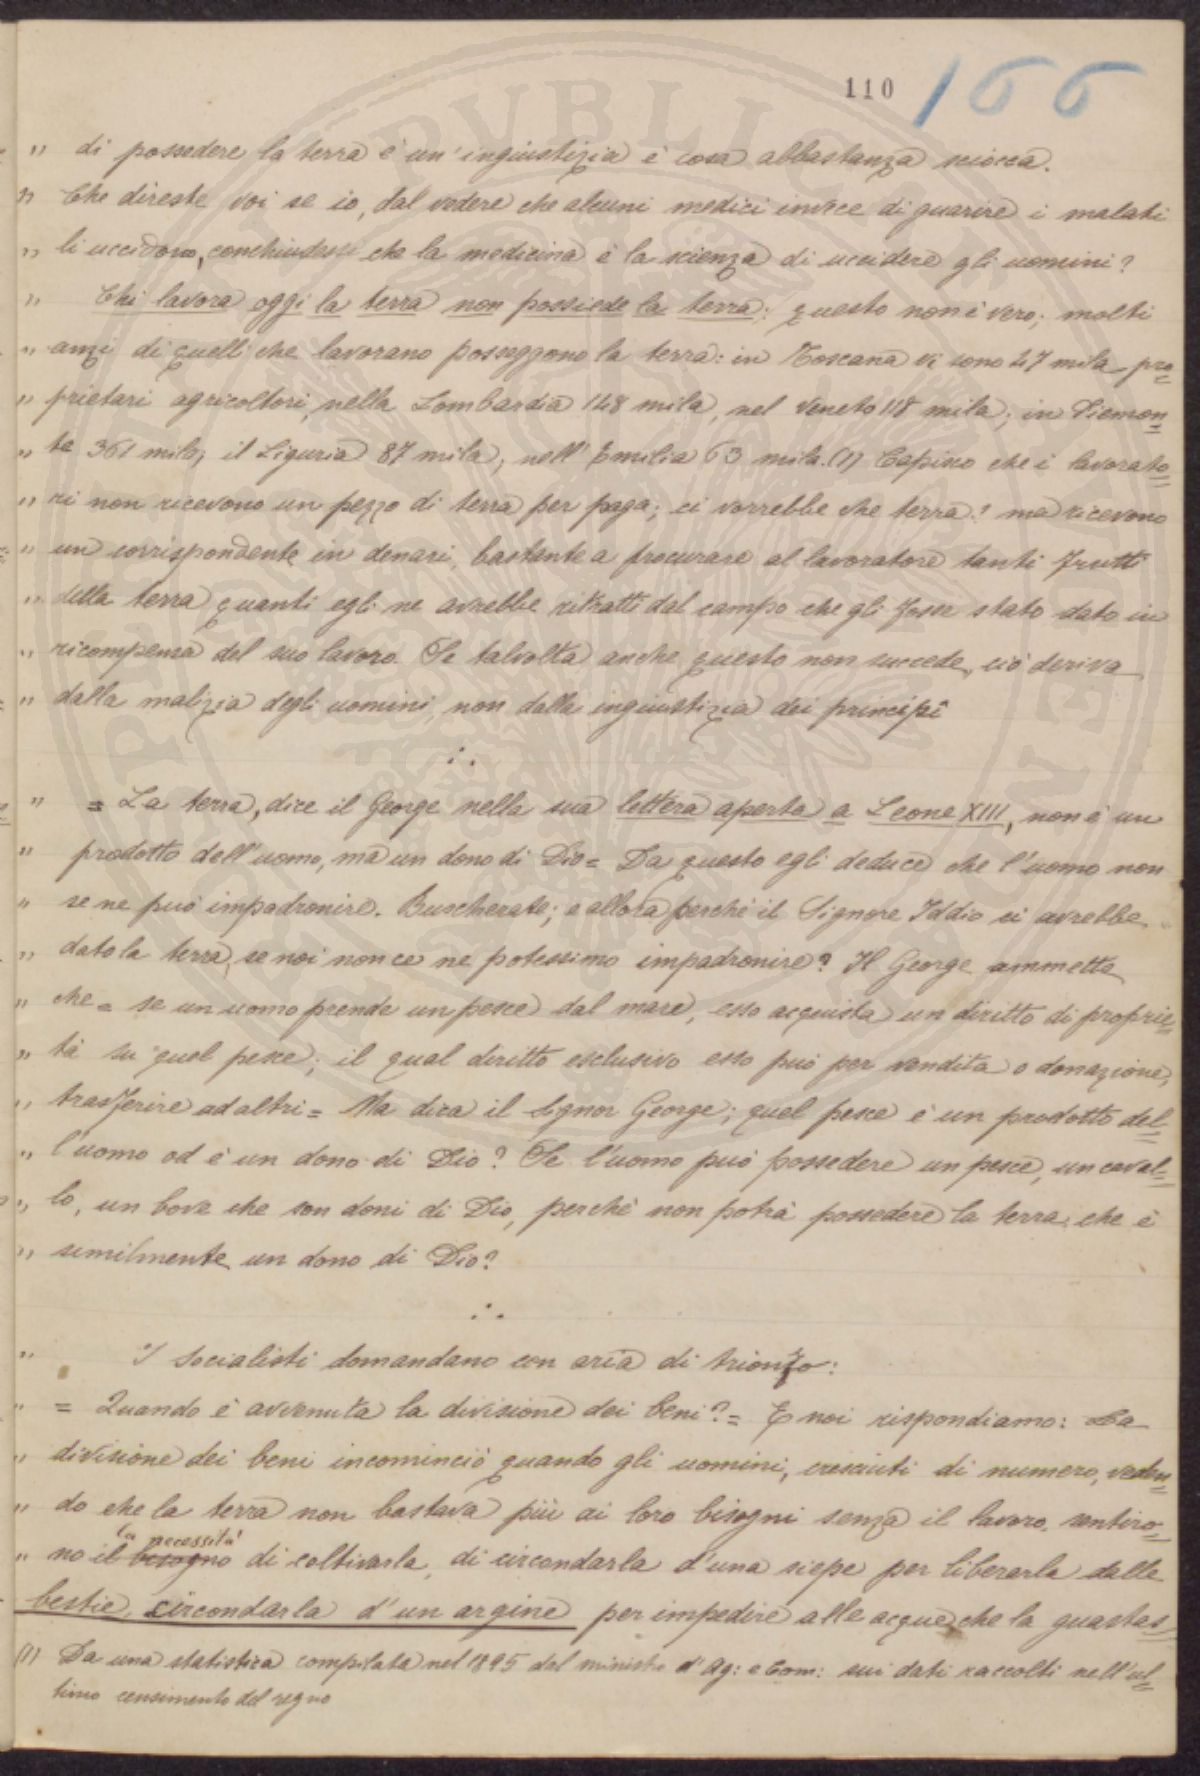 110 166
" di possedere la terra è un'ingiustizia è cosa abbastanza sciocca.
" Che direste voi se io, dal vedere che alcuni medici invece di guarire i malati
" li uccidono, conchiudessi che la medicina è la scienza di uccidere gli uomini?
" Chi lavora oggi la terra non possiede la terra: questo non è vero; molti
" anzi di quelli che lavorano posseggono la terra: in Toscana vi sono 47 mila pro=
" prietari agricoltori, nella Lombardia 148 mila, nel Veneto 118 mila; in Piemon=
" te 361 mila; il Liguria 87 mila, nell'Emilia 63 mila. (1) Capisco che i lavorato=
" ri non ricevono un pezzo di terra per paga; ci vorrebbe che terra! ma ricevono
" un corrispondente in denari, bastante a procurare al lavoratore tanti frutti
" della terra quanti egli ne avrebbe ritratti dal campo che gli fosse stato dato in
" ricompensa del suo lavoro. Se talvolta anche questo non succede, ciò deriva
" dalla malizia degli uomini, non dalla ingiustizia dei principî
∴
" = La terra, dice il George nella sua lettera aperta a Leone XIII, non è un
" prodotto dell'uomo, ma un dono di Dio = Da questo egli deduce che l'uomo non
" se ne può impadronire. Buscherate; e allora perchè il Signore Iddio ci avrebbe
" dato la terra, se noi non ce ne potessimo impadronire? Il George ammette
" che = se un uomo prende un pesce dal mare, esso acquista un diritto di proprie=
" tà su quel pesce; il qual diritto esclusivo esso può per vendita o donazione,
" trasferire ad altri = Ma dica il Signor George; quel pesce è un prodotto del=
" l'uomo od è un dono di Dio? Se l'uomo può possedere un pesce, un caval=
" lo, un bove che son doni di Dio, perchè non potrà possedere la terra che è
" similmente un dono di Dio?
∴
" I socialisti domandano con aria di trionfo:
" = Quando è avvenuta la divisione dei beni? = E noi rispondiamo: La
" divisione dei beni incominciò quando gli uomini, cresciuti di numero, veden=
" do che la terra non bastava più ai loro bisogni senza il lavoro, sentiro=
la necessità
" no il bisogno di coltivarla, di circondarla d'una siepe per liberarla dalle
bestie, circondarla d'un argine per impedire alle acque che la guastas=
(1) Da una statistica compilata nel 1895 dal ministro d'Ag: e Com: sui dati raccolti nell'ul=
timo censimento del regno